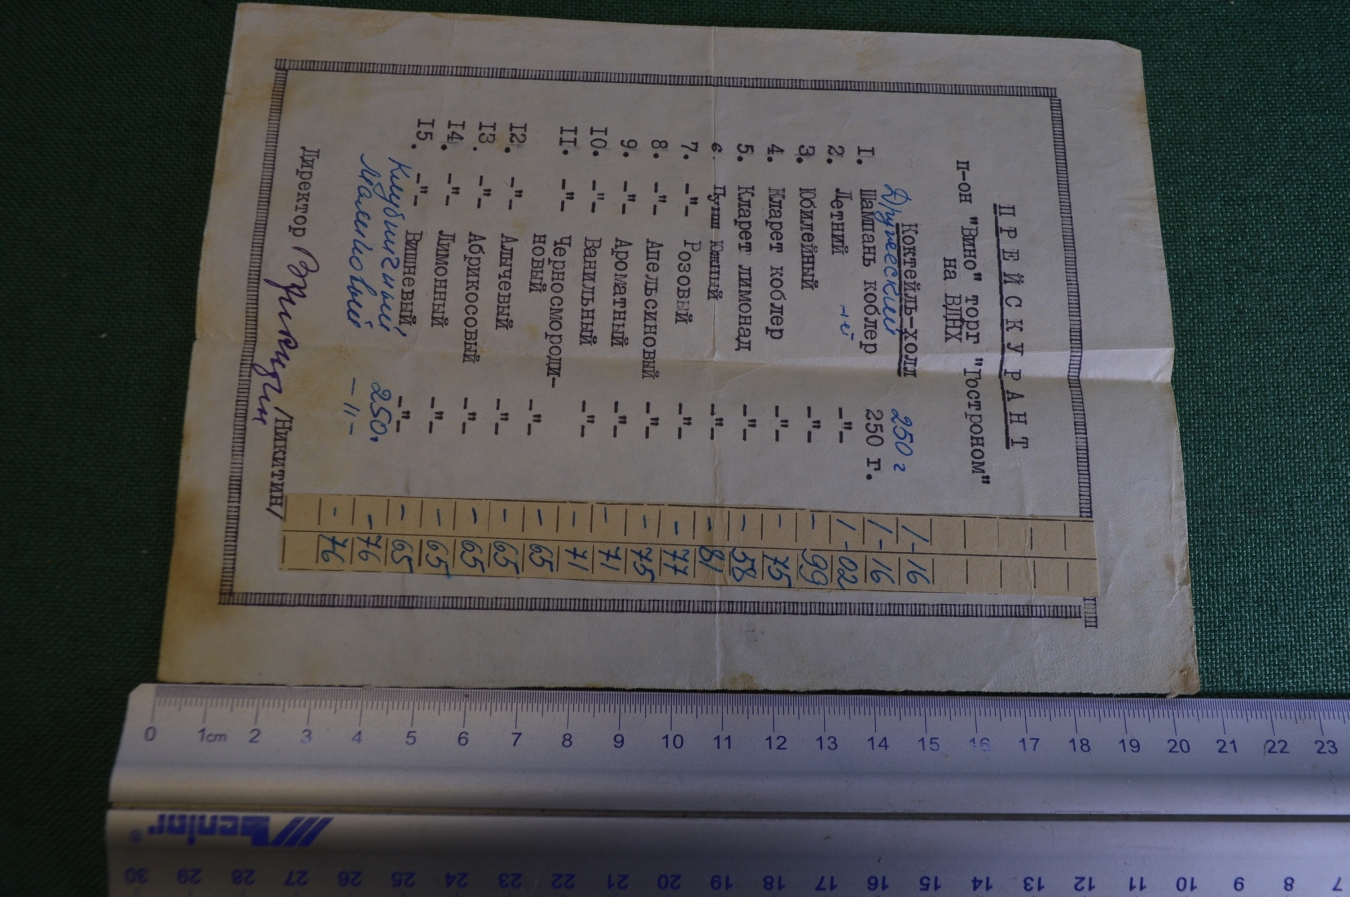 ПРЕЙСКУРАНТ
п-он "Вино" торг "Гостроном"
на ВДНХ
Коктейль-холл
Дружеский 250 г 1-16
1. Шампань коблер 250 г. 1-16
2. Летний -"- 1-02
3. Юбилейный -"- - 99
4. Кларет коблер -"- - 75
5. Кларет лимонад -"- - 58
6. Пунш Южный -"- - 81
7. -"- Розовый -"- - 77
8. -"- Апельсиновый -"- - 75
9. -"- Ароматный -"- - 71
10. -"- Ванильный -"- - 71
11. -"- Черносмороди-
новый -"- - 65
12. -"- Алычевый -"- - 65
13. -"- Абрикосовый -"- - 65
14. -"- Лимонный -"- - 65
15. -"- Вишневый -"- - 65
Клубничный 250г - 76
Малиновый -"- - 76
Директор /Никитин/
0 1cm 2 3 4 5 6 7 8 9 10 11 12 13 14 15 16 17 18 19 20 21 22 23
Senior ®
30 29 28 27 26 25 24 23 22 21 20 19 18 17 16 15 14 13 12 11 10 9 8 7